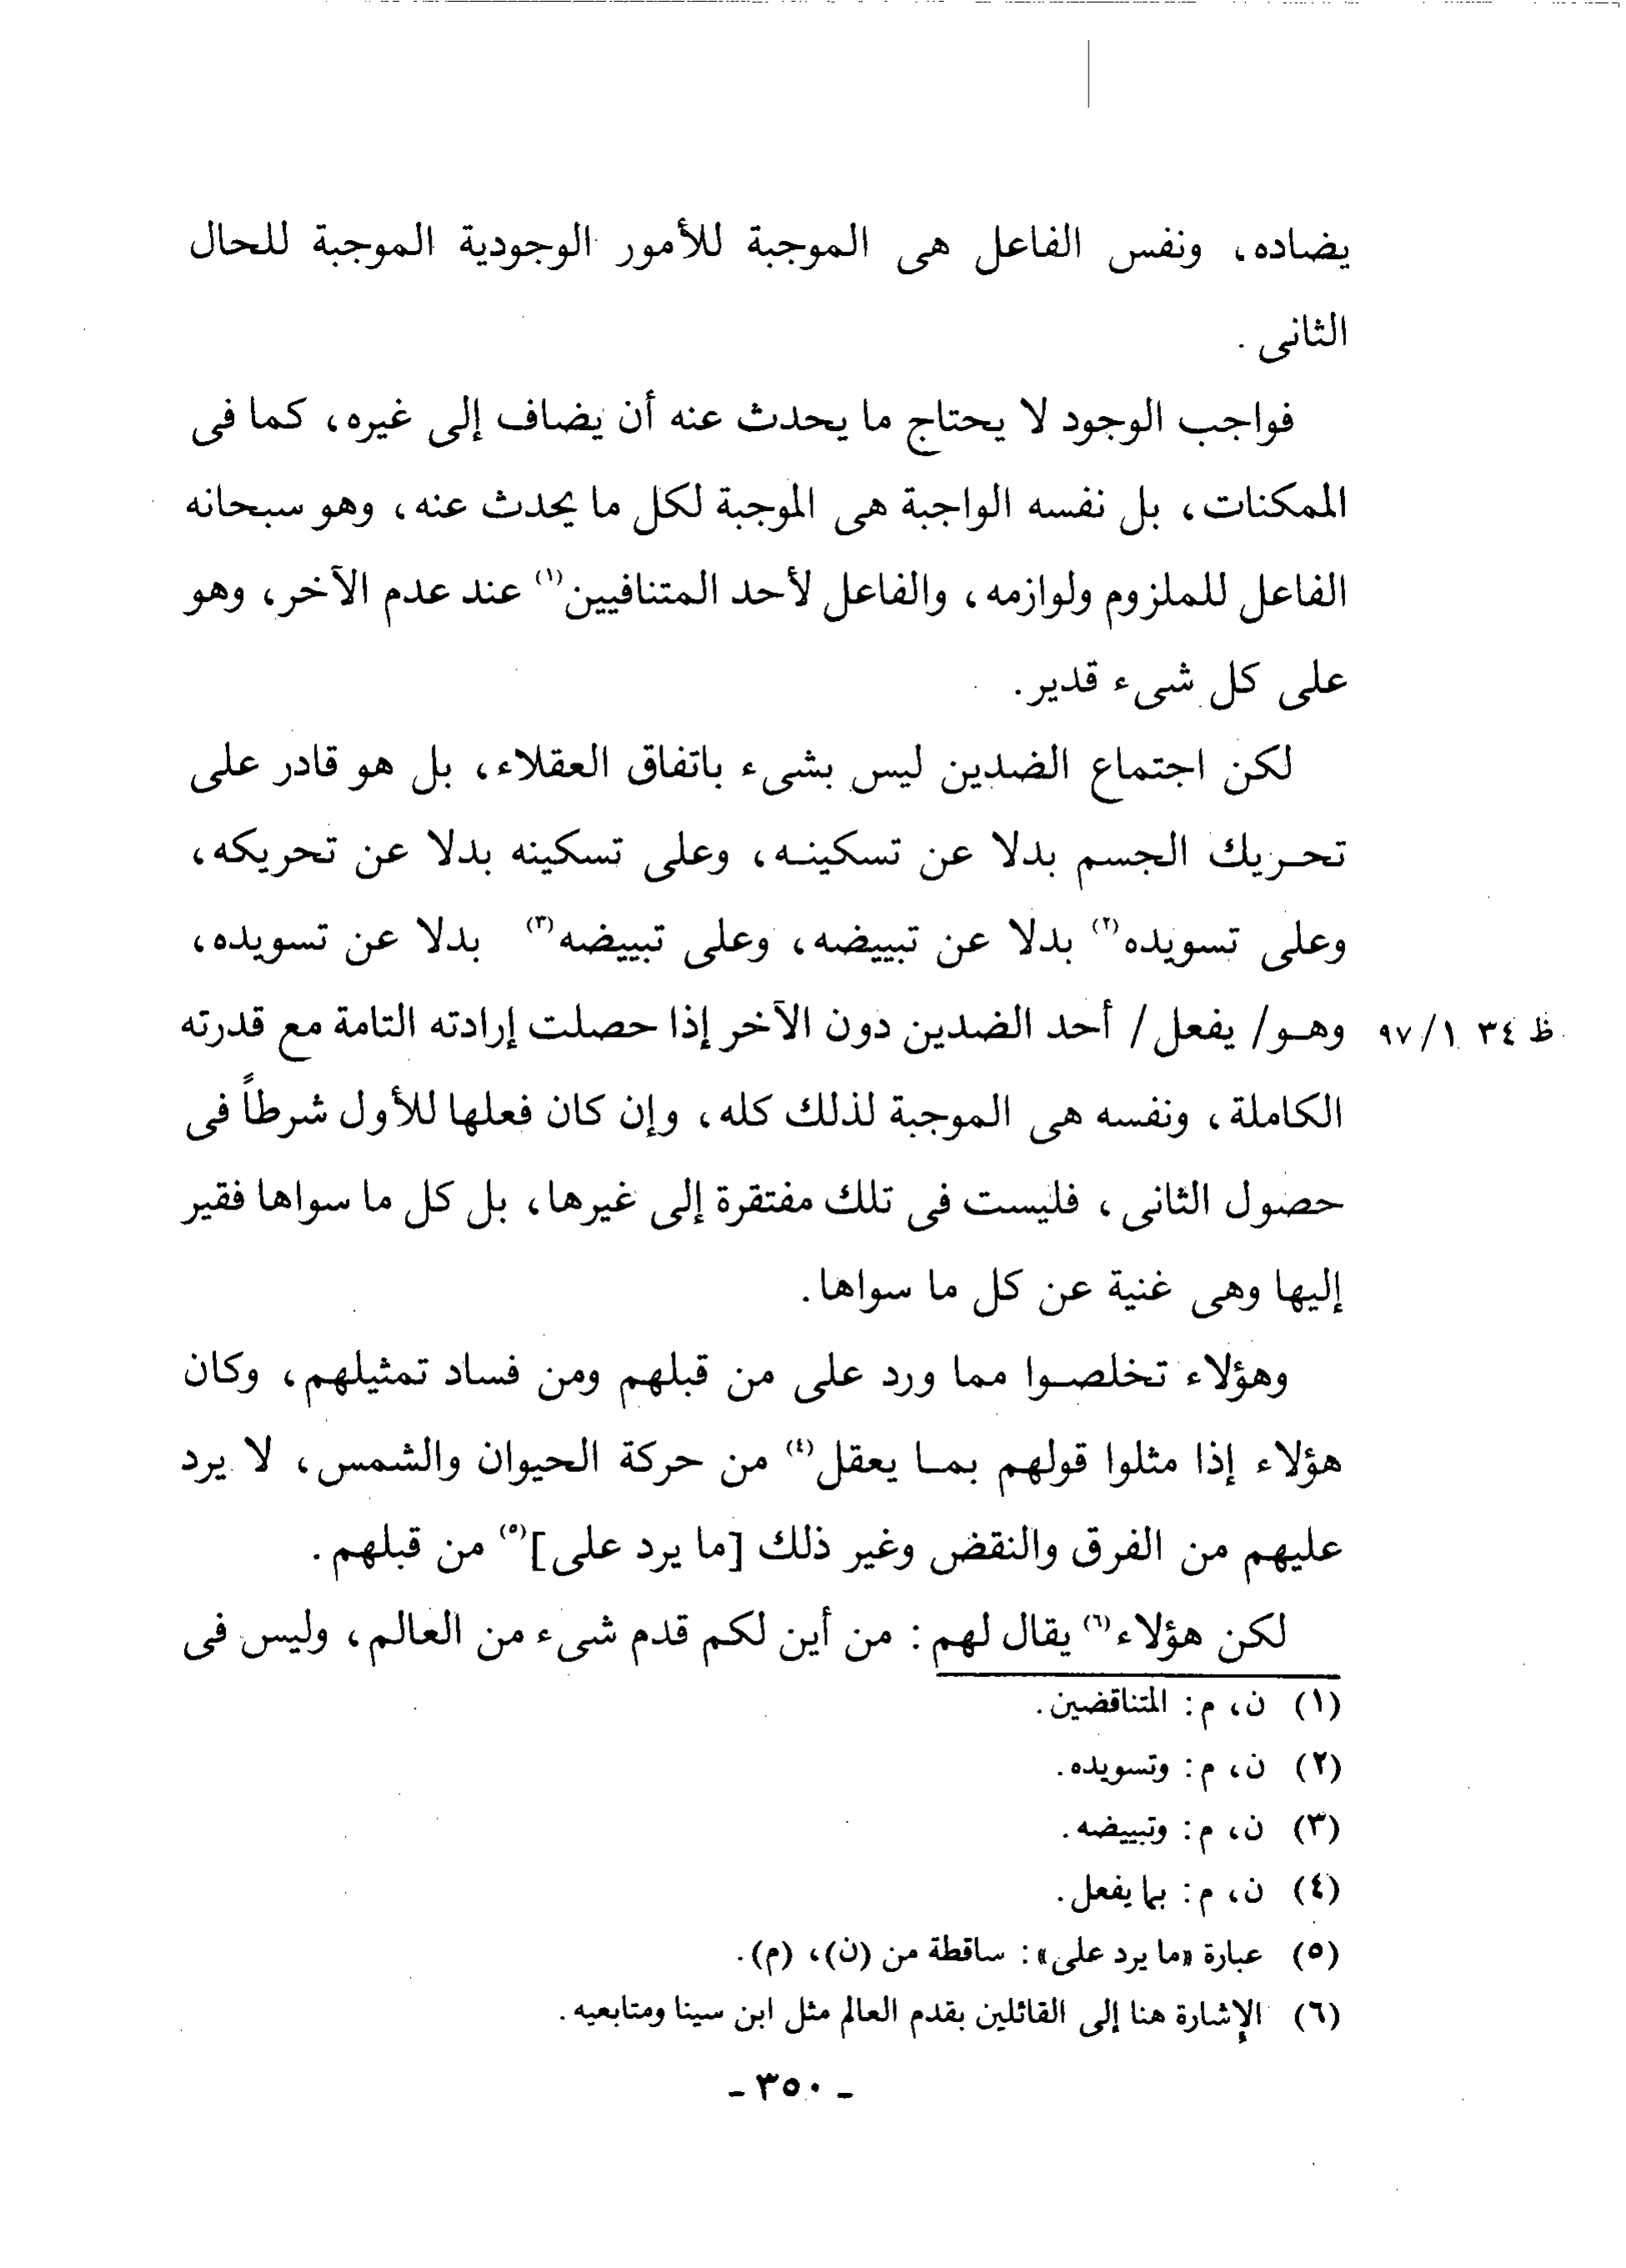 يضاده، ونفس الفاعل هى الموجبة للأمور الوجودية الموجبة للحال
الثانى .
فواجب الوجود لا يحتاج ما يحدث عنه أن يضاف إلى غيره، كما فى
الممكنات، بل نفسه الواجبة هى الموجبة لكل ما يحدث عنه، وهو سبحانه
الفاعل للملزوم ولوازمه، والفاعل لأحد المتنافيين(١) عند عدم الآخر، وهو
على كل شىء قدير.
لكن اجتماع الضدين ليس بشىء باتفاق العقلاء، بل هو قادر على
تحـريك الجسم بدلا عن تسكينـه، وعلى تسكينه بدلا عن تحريكه،
وعلى تسويده(٢) بدلا عن تبييضه، وعلى تبييضه(٣) بدلا عن تسويده،
وهـو/ يفعل/ أحد الضدين دون الآخر إذا حصلت إرادته التامة مع قدرته ظ ٣٤ ١/ ٩٧
الكاملة، ونفسه هى الموجبة لذلك كله، وإن كان فعلها للأول شرطاً فى
حصول الثانى، فليست فى تلك مفتقرة إلى غيرها، بل كل ما سواها فقير
إليها وهى غنية عن كل ما سواها.
وهؤلاء تخلصـوا مما ورد على من قبلهم ومن فساد تمثيلهم، وكان
هؤلاء إذا مثلوا قولهم بمـا يعقل(٤) من حركة الحيوان والشمس، لا يرد
عليهم من الفرق والنقض وغير ذلك [ما يرد على](٥) من قبلهم.
لكن هؤلاء(٦) يقال لهم : من أين لكم قدم شىء من العالم، وليس فى
(١) ن، م: المتناقضين.
(٢) ن، م: وتسويده.
(٣) ن، م: وتبييضه.
(٤) ن، م: بما يفعل.
(٥) عبارة «ما يرد على»: ساقطة من (ن)، (م).
(٦) الإشارة هنا إلى القائلين بقدم العالم مثل ابن سينا ومتابعيه.
- ٣٥٠ -